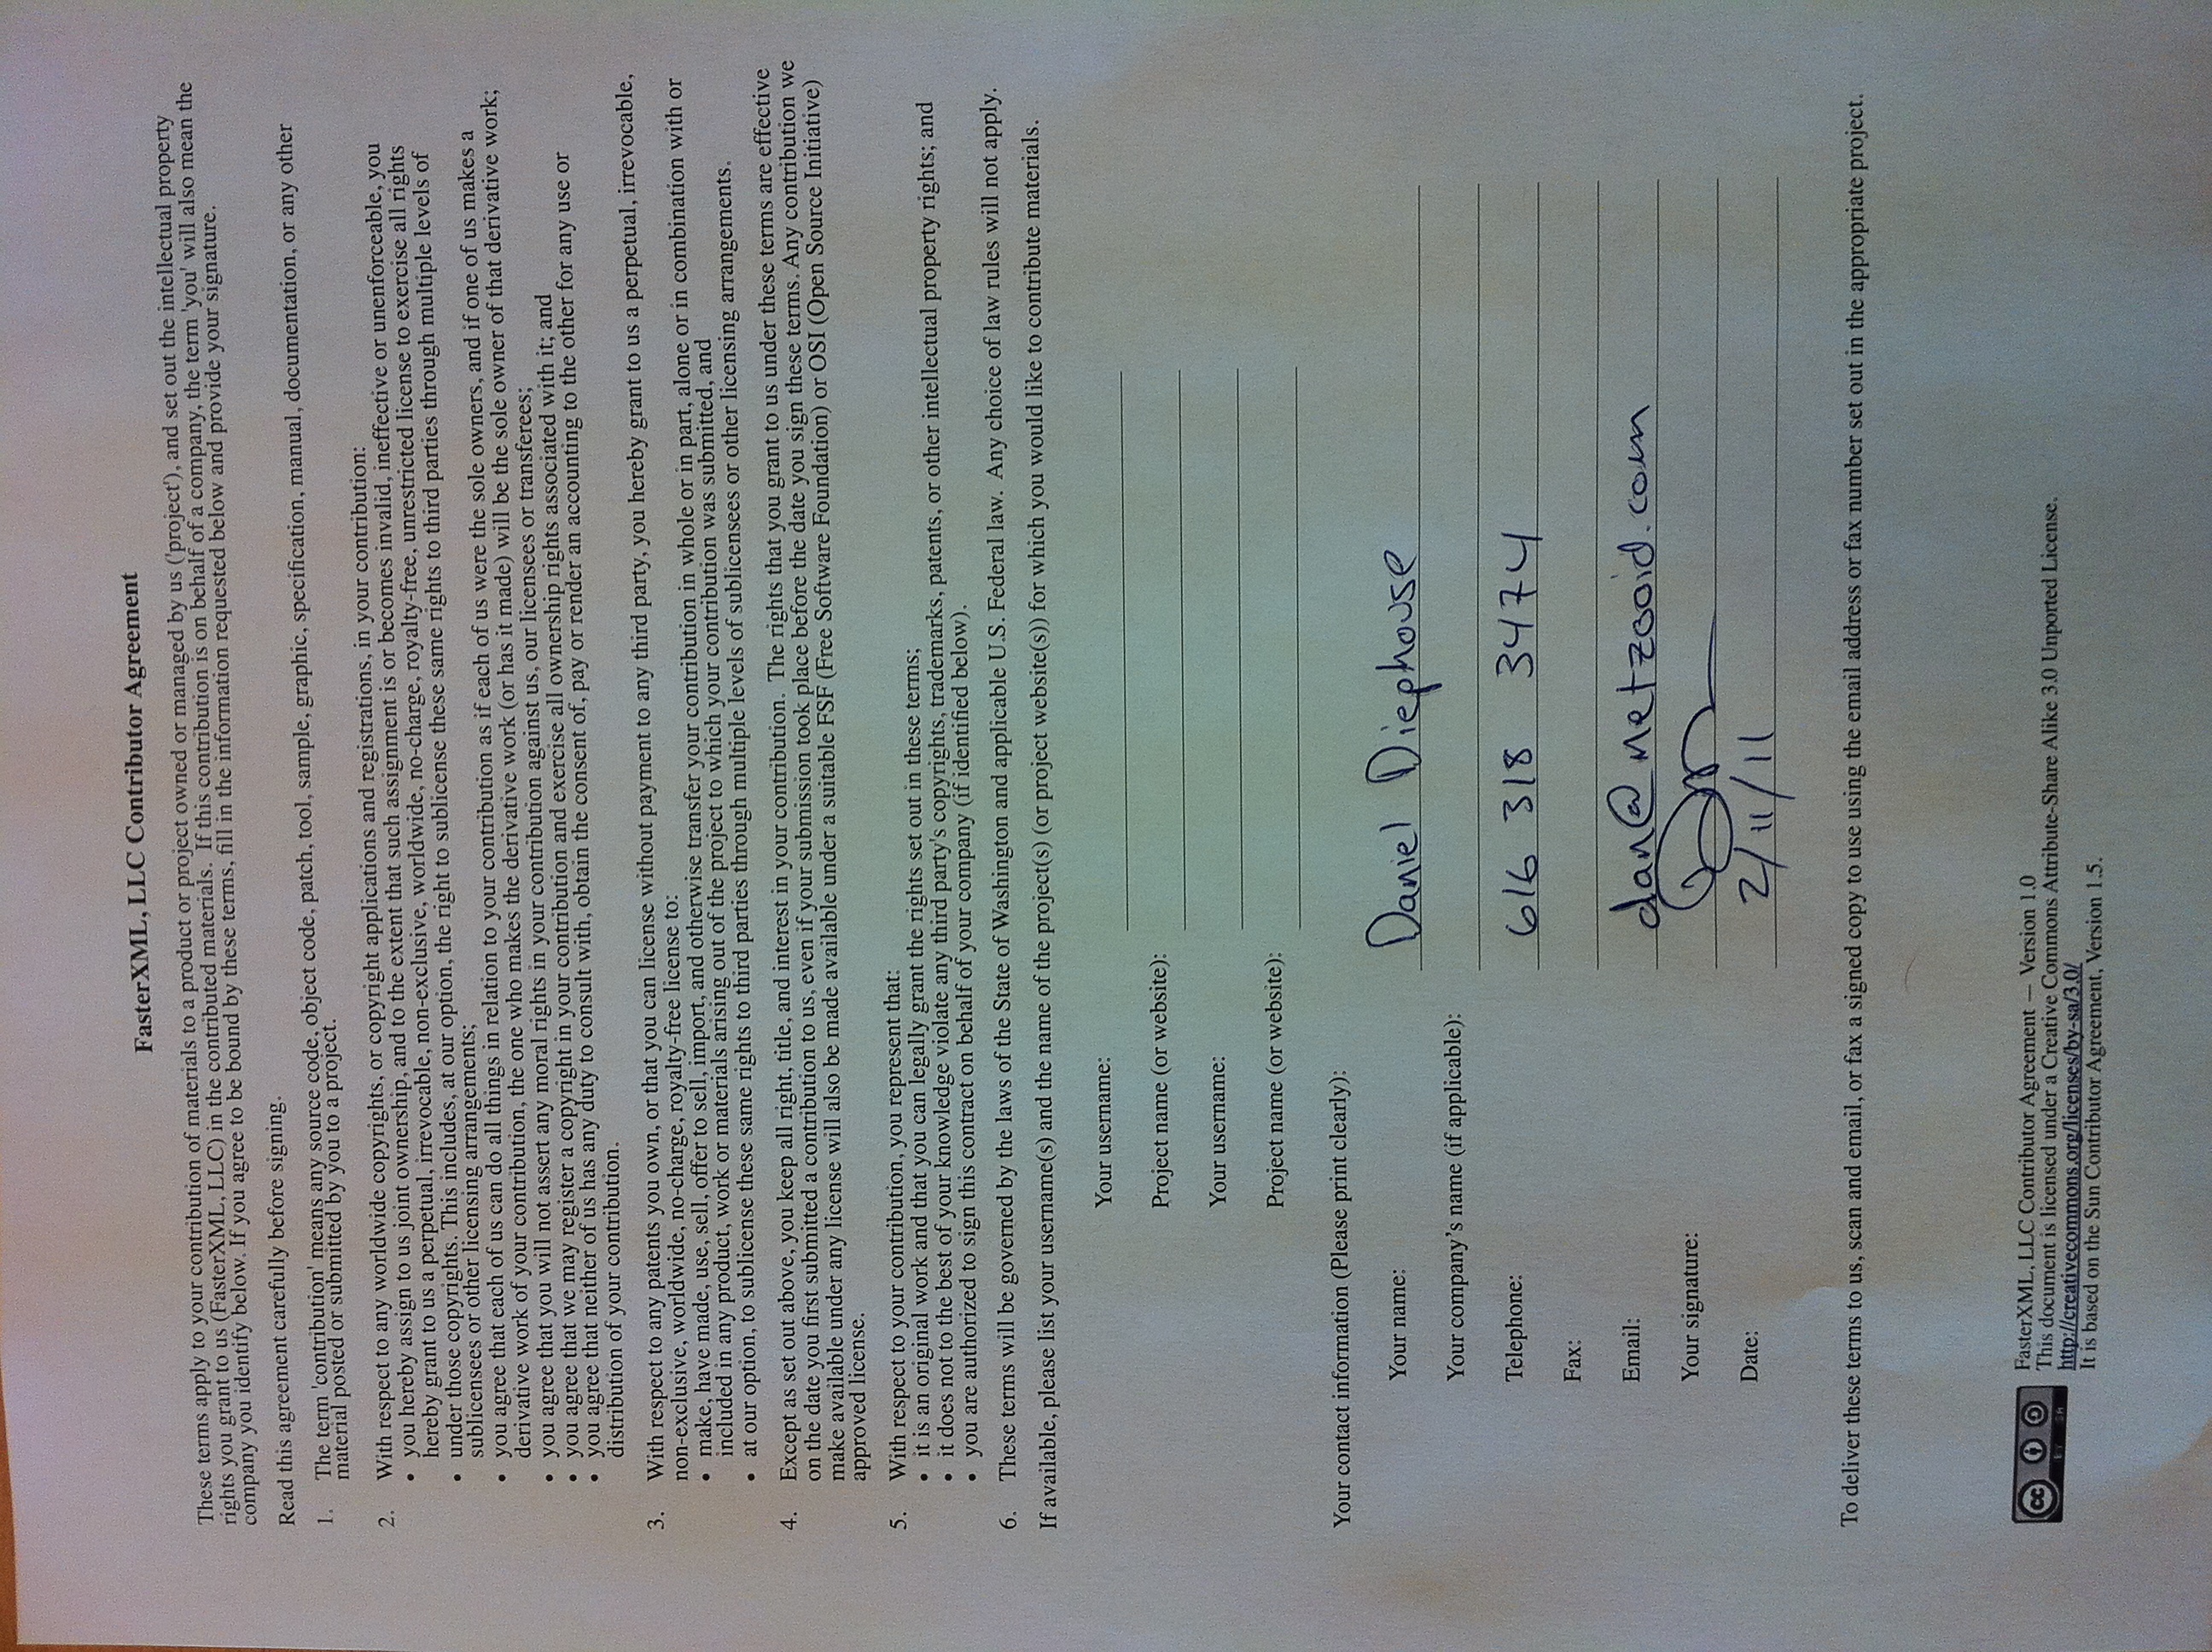 FasterXML, LLC Contributor Agreement
These terms apply to your contribution of materials to a product or project owned or managed by us ('project'), and set out the intellectual property
rights you grant to us (FasterXML, LLC) in the contributed materials. If this contribution is on behalf of a company, the term 'you' will also mean the
company you identify below. If you agree to be bound by these terms, fill in the information requested below and provide your signature.
Read this agreement carefully before signing.
1. The term 'contribution' means any source code, object code, patch, tool, sample, graphic, specification, manual, documentation, or any other
material posted or submitted by you to a project.
2. With respect to any worldwide copyrights, or copyright applications and registrations, in your contribution:
• you hereby assign to us joint ownership, and to the extent that such assignment is or becomes invalid, ineffective or unenforceable, you
hereby grant to us a perpetual, irrevocable, non-exclusive, worldwide, no-charge, royalty-free, unrestricted license to exercise all rights
• under those copyrights. This includes, at our option, the right to sublicense these same rights to third parties through multiple levels of
sublicensees or other licensing arrangements;
• you agree that each of us can do all things in relation to your contribution as if each of us were the sole owners, and if one of us makes a
derivative work of your contribution, the one who makes the derivative work (or has it made) will be the sole owner of that derivative work;
• you agree that you will not assert any moral rights in your contribution against us, our licensees or transferees;
• you agree that we may register a copyright in your contribution and exercise all ownership rights associated with it; and
• you agree that neither of us has any duty to consult with, obtain the consent of, pay or render an accounting to the other for any use or
distribution of your contribution.
3. With respect to any patents you own, or that you can license without payment to any third party, you hereby grant to us a perpetual, irrevocable,
non-exclusive, worldwide, no-charge, royalty-free license to:
• make, have made, use, sell, offer to sell, import, and otherwise transfer your contribution in whole or in part, alone or in combination with or
included in any product, work or materials arising out of the project to which your contribution was submitted, and
• at our option, to sublicense these same rights to third parties through multiple levels of sublicensees or other licensing arrangements.
4. Except as set out above, you keep all right, title, and interest in your contribution. The rights that you grant to us under these terms are effective
on the date you first submitted a contribution to us, even if your submission took place before the date you sign these terms. Any contribution we
make available under any license will also be made available under a suitable FSF (Free Software Foundation) or OSI (Open Source Initiative)
approved license.
5. With respect to your contribution, you represent that:
• it is an original work and that you can legally grant the rights set out in these terms;
• it does not to the best of your knowledge violate any third party's copyrights, trademarks, patents, or other intellectual property rights; and
• you are authorized to sign this contract on behalf of your company (if identified below).
6. These terms will be governed by the laws of the State of Washington and applicable U.S. Federal law. Any choice of law rules will not apply.
If available, please list your username(s) and the name of the project(s) (or project website(s)) for which you would like to contribute materials.
Your username:
Project name (or website):
Your username:
Project name (or website):
Your contact information (Please print clearly):
Your name: Daniel Diephouse
Your company's name (if applicable):
Telephone: 616 318 3474
Fax:
Email: dan@netzooid.com
Your signature:
Date: 2/11/11
To deliver these terms to us, scan and email, or fax a signed copy to use using the email address or fax number set out in the appropriate project.
cc BY SA
FasterXML, LLC Contributor Agreement — Version 1.0
This document is licensed under a Creative Commons Attribute-Share Alike 3.0 Unported License.
http://creativecommons.org/licenses/by-sa/3.0/
It is based on the Sun Contributor Agreement, Version 1.5.